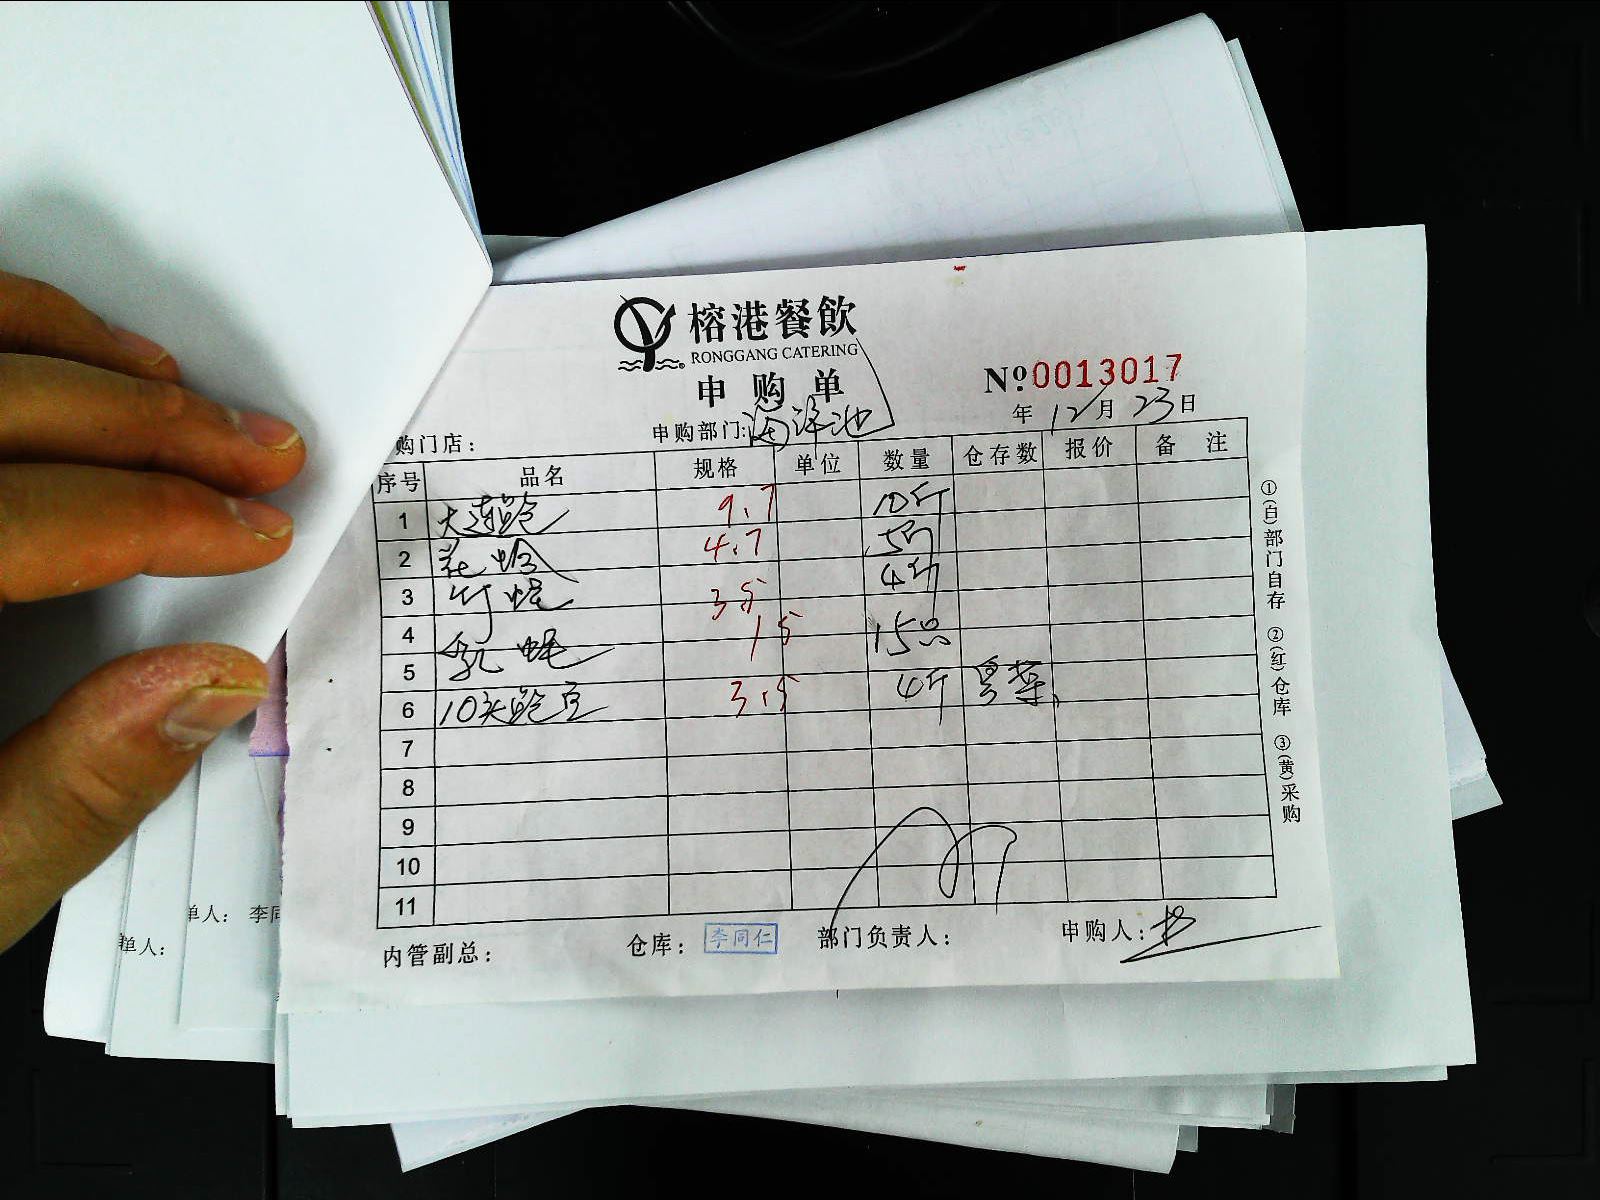 榕港餐飲
RONGGANG CATERING
申购单
№0013017
年12月23日
购门店： 申购部门:海鲜池
序号 品名 规格 单位 数量 仓存数 报价 备 注
1 大连鲍 9.7 10斤
2 花蛤 4.7 5斤
3 竹蛏 35 4斤
4 乳 15 15只
5
6 10头鲍 3.5 4斤
7
8
9
10
11
内管副总： 仓库： 李同仁 部门负责人： 申购人：
①(白)部门自存 ②(红)仓库 ③(黄)采购
单人： 李同
单人：